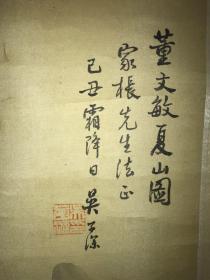 董文敏夏山图
家枨先生法正
己丑霜降日吴琛